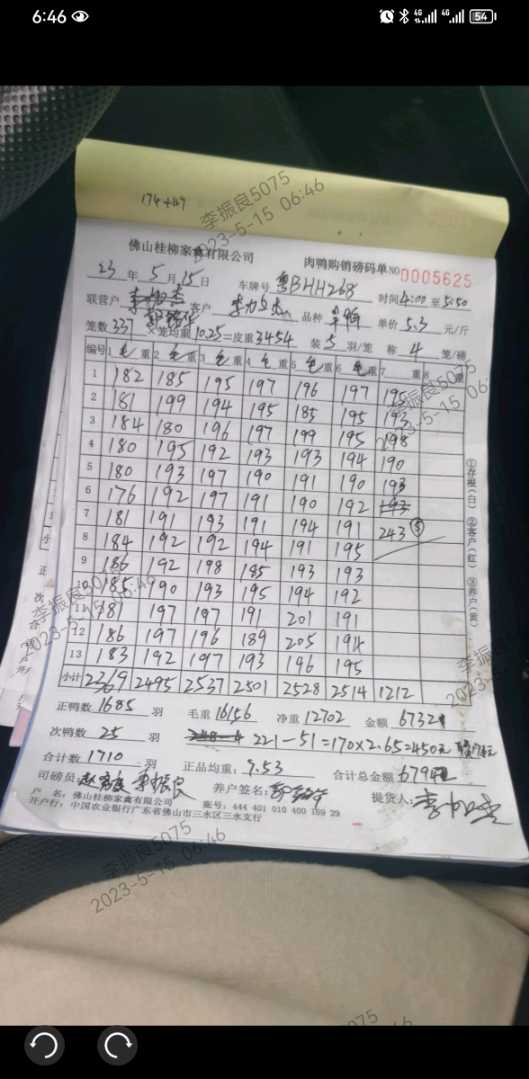 6:46
4G 4G 54
174+49
李振良5075
2023-5-15 06:46
佛山桂柳家禽有限公司 肉鸭购销磅码单 NO 0005625
23 年 5 月 15 日 车牌号 粤BHH268 时间 4:00 至 5:50
联营户 客户 品种 单价 5.3 元/斤
笼数 337 × 笼均重 10.25 = 皮重 3454 装 5 羽/笼 称 4 笼/磅
编号 1 毛 重 2 毛 重 3 毛 重 4 毛 重 5 毛 重 6 毛 重 7 重 8 重
1 182 185 195 197 196 197 195
2 181 199 194 195 185 195 193
3 184 180 196 197 199 195 198
4 180 195 192 193 193 194 190
5 180 193 197 190 191 190 193
6 176 192 197 191 190 192
7 181 191 193 191 194 191 243 ⑤
8 184 192 192 194 191 195
9 186 192 198 185 193 193
10 185 190 193 195 194 192
11 181 197 197 191 201 191
12 186 197 196 189 205 194
13 183 192 197 193 196 195
小计 2369 2495 2537 2501 2528 2514 1212
①存根(白) ②客户(红) ③养户(黄)
正鸭数 1685 羽 毛重 16156 净重 12702 金额 67321
次鸭数 25 羽 221-51=170×2.65=450元
合计数 1710 羽 正品均重: 7.53 合计总金额
司磅员: 李振良 养户签名: 提货人:
户 名: 佛山桂柳家禽有限公司 账号: 444 401 010 400 189 29
开户行: 中国农业银行广东省佛山市三水区三水支行
李振良5075
2023-5-15 06:46